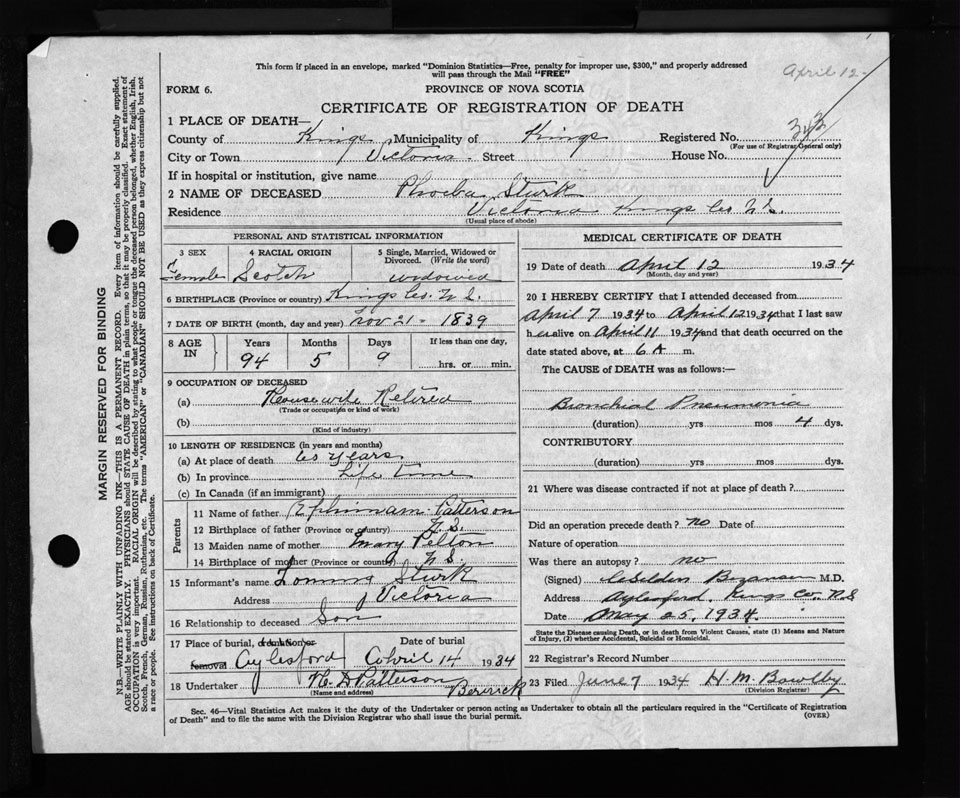 April 12-
This form if placed in an envelope, marked "Dominion Statistics—Free, penalty for improper use, $300," and properly addressed
will pass through the Mail "FREE"
FORM 6.
PROVINCE OF NOVA SCOTIA
CERTIFICATE OF REGISTRATION OF DEATH
MARGIN RESERVED FOR BINDING
N.B.—WRITE PLAINLY WITH UNFADING INK—THIS IS A PERMANENT RECORD. Every item of information should be carefully supplied.
AGE should be stated EXACTLY. PHYSICIANS should STATE CAUSE OF DEATH in plain terms, so that it may be properly classified. Exact statement of
OCCUPATION is very important. RACIAL ORIGIN will be described by stating to what people or tongue the deceased person belonged, whether English, Irish,
Scotch, French, German, Russian, Ruthenian, etc. The terms "AMERICAN" or "CANADIAN" SHOULD NOT BE USED as they express citizenship but not
a race or people. See instructions on back of Certificate.
1 PLACE OF DEATH—
County of Kings Municipality of Kings Registered No.
(For use of Registrar General only)
City or Town Victoria Street House No.
If in hospital or institution, give name
2 NAME OF DECEASED Phoeba Sturk
Residence Victoria Kings Co N.S.
(Usual place of abode)
PERSONAL AND STATISTICAL INFORMATION
3 SEX Female
4 RACIAL ORIGIN Scotch
5 Single, Married, Widowed or
Divorced. (Write the word)
widowed
6 BIRTHPLACE (Province or country) Kings Co. N.S.
7 DATE OF BIRTH (month, day and year) Nov 21 - 1839
8 AGE IN
Years Months Days If less than one day,
94 5 9 hrs. or min.
9 OCCUPATION OF DECEASED
(a) Housewife Retired
(Trade or occupation or kind of work)
(b)
(Kind of industry)
10 LENGTH OF RESIDENCE (in years and months)
(a) At place of death 60 years.
(b) In province Life time
(c) In Canada (if an immigrant)
Parents
11 Name of father Ephiriam Patterson
12 Birthplace of father (Province or country) N.S.
13 Maiden name of mother Mary Pelton
14 Birthplace of mother (Province or country) N.S.
15 Informant's name Sturk
Address Victoria
16 Relationship to deceased Son
17 Place of burial, cremation or
removal Aylesford
Date of burial
April 14 1934
18 Undertaker Patterson Berwick
(Name and address)
MEDICAL CERTIFICATE OF DEATH
19 Date of death April 12 1934
(Month, day and year)
20 I HEREBY CERTIFY that I attended deceased from
April 7 1934 to April 12 1934 that I last saw
her alive on April 11 1934 and that death occurred on the
date stated above, at 6 A m.
The CAUSE of DEATH was as follows:—
Bronchial Pneumonia
(duration) yrs mos 4 dys.
CONTRIBUTORY
(duration) yrs mos dys.
21 Where was disease contracted if not at place of death?
Did an operation precede death? no Date of
Nature of operation
Was there an autopsy? no
(Signed) M.D.
Address Aylesford, Kings Co, N.S
Date May 25, 1934.
State the Disease causing Death, or in death from Violent Causes, state (1) Means and Nature
of Injury, (2) whether Accidental, Suicidal or Homicidal.
22 Registrar's Record Number
23 Filed June 7 1934 H. M. Bowlby
(Division Registrar)
Sec. 46—Vital Statistics Act makes it the duty of the Undertaker or person acting as Undertaker to obtain all the particulars required in the "Certificate of Registration
of Death" and to file the same with the Division Registrar who shall issue the burial permit.
(OVER)